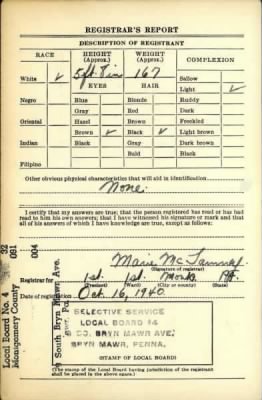 REGISTRAR'S REPORT
DESCRIPTION OF REGISTRANT
RACE
HEIGHT (Approx.)
WEIGHT (Approx.)
COMPLEXION
White ✓
5 ft 8 in
167
Sallow
EYES
HAIR
Light ✓
Negro
Blue
Blonde
Ruddy
Gray
Red
Dark
Oriental
Hazel
Brown
Freckled
Brown ✓
Black ✓
Light brown
Indian
Black
Gray
Dark brown
Bald
Black
Filipino
Other obvious physical characteristics that will aid in identification
None.
I certify that my answers are true; that the person registered has read or has had
read to him his own answers; that I have witnessed his signature or mark and that
all of his answers of which I have knowledge are true, except as follows:
Marie Mc
(Signature of registrar)
Registrar for 1st. 1st.
(Precinct) (Ward) (City or county) (State)
Date of registration Oct. 16, 1940.
Local Board No. 4 32
Montgomery County 091
004
South Bryn Mawr Ave.
SELECTIVE SERVICE
LOCAL BOARD #4
SO. BRYN MAWR AVE.
BRYN MAWR, PENNA.
(STAMP OF LOCAL BOARD)
(The stamp of the Local Board having jurisdiction of the registrant shall
be placed in the above space.)